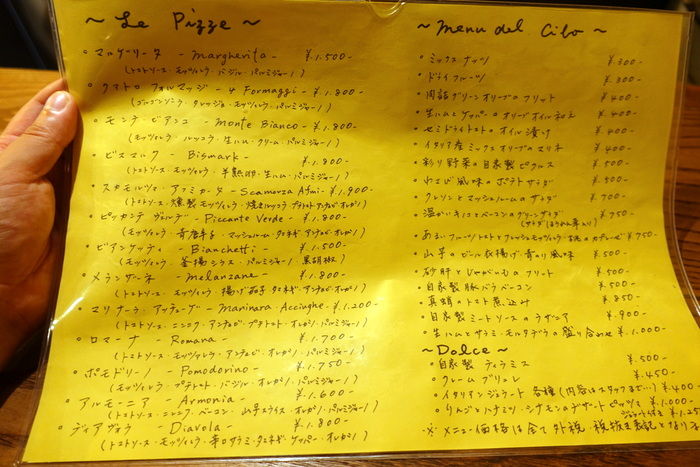 ~ Le Pizze ~
・マルゲリータ - Margherita - ¥1.500-
(トマトソース・モッツァレラ・バジル・パルミジャーノ)
・クアトロ フォルマッジ - 4 Formaggi - ¥1.800-
(ゴルゴンゾーラ・タレッジョ・モッツァレラ・パルミジャーノ)
・モンテ ビアンコ - Monte Bianco - ¥1.800-
(モッツァレラ・ルッコラ・生ハム・クリーム・パルミジャーノ)
・ビスマルク - Bismark - ¥1.800-
(トマトソース・モッツァレラ・半熟卵・生ハム・パルミジャーノ)
・スカモルツァ・アフミカータ - Scamorza Afmi - ¥1.900-
(トマトソース・燻製モッツァレラ・焼きルッコラ・プチトマト・アンチョビ・オレガノ)
・ピッカンテ ヴェルデ - Piccante Verde - ¥1.800-
(モッツァレラ・青唐辛子・マッシュルーム・タマネギ・アンチョビ・オレガノ)
・ビアンケッティ - Bianchetti - ¥1.500-
(モッツァレラ・釜揚シラス・パルミジャーノ・黒胡椒)
・メランザーネ - Melanzane - ¥1.800-
(トマトソース・モッツァレラ・揚げ茄子・タマネギ・アンチョビ・オレガノ)
・マリナーラ・アッチューゲ - Marinara・Acciughe - ¥1.200-
(トマトソース・ニンニク・アンチョビ・プチトマト・オレガノ・パルミジャーノ)
・ロマーナ - Romana - ¥1.700-
(トマトソース・モッツァレラ・アンチョビ・オレガノ・パルミジャーノ)
・ポモドリーノ - Pomodorino - ¥1.750-
(モッツァレラ・プチトマト・バジル・オレガノ・パルミジャーノ)
・アルモーニア - Armonia - ¥1.600-
(トマトソース・ニンニク・ベーコン・山芋スライス・オレガノ・パルミジャーノ)
・ディアヴォラ - Diavola - ¥1.800-
(トマトソース・モッツァレラ・辛口サラミ・タマネギ・ケッパー・オレガノ)
~ Menu del Cibo ~
・ミックスナッツ ¥300-
・ドライフルーツ ¥300-
・肉詰グリーンオリーブのフリット ¥400-
・生ハムとケッパーのオリーブオイル和え ¥400-
・セミドライトマトのオイル漬け ¥400-
・イタリア産ミックスオリーブのマリネ ¥400-
・彩り野菜の自家製ピクルス ¥500-
・わさび風味のポテトサラダ ¥500-
・クレソンとマッシュルームのサラダ ¥700-
・温かいキノコとベーコンのグリーンサラダ ¥750-
(サラダほうれん草入り)
・あまいフルーツトマトとフレッシュモッツァレラのカプレーゼ ¥750-
・山芋のビール衣揚げ青のり風味 ¥500-
・砂肝とじゃがいものフリット ¥500-
・自家製豚バラベーコン ¥500-
・真蛸のトマト煮込み ¥850-
・自家製ミートソースのラザニア ¥900-
・生ハムとサラミ・モルタデラの盛り合わせ ¥1.000-
~ Dolce ~
・自家製ティラミス ¥500-
・クレームブリュレ ¥450-
・イタリアンジェラート各種(内容はスタッフまで…) ¥400-
・りんごとハチミツ・シナモンのデザートピッツァ ¥1.000-
ジェラート付き ¥1.25
※メニュー価格は全て外税・税抜き表記となりま